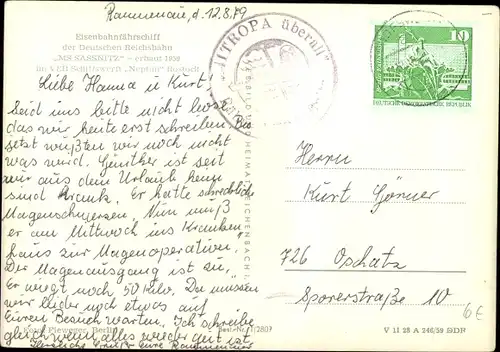 Rammenau, d. 12.8.79
Eisenbahnfährschiff
der Deutschen Reichsbahn
"MS SASSNITZ" - erbaut 1959
im VEB Schiffswerft "Neptun" Rostock
Liebe Hanna u. Kurt!
Seid uns bitte nicht böse,
das wir heute erst schreiben. Bis
jetzt wußten wir noch nicht
was wird. Günther ist seit
wir aus dem Urlaub heim
sind krank. Er hatte schreckliche
Magenschmerzen. Nun muß
er am Mittwoch ins Kranken/
haus zur Magenoperation.
Der Magenausgang ist zu.
Er wiegt noch 50 Kilo. Da müssen
wir leider noch etwas auf
Euren Besuch warten. Ich schreibe
gleich wenn alles wieder gut ist.
Herzliche Grüße Eure Rammenauer
Foto: Fieweger, Berlin
Best.-Nr.
BILD UND HEIMAT REICHENBACH I. V.
"MITROPA überall"
10
DEUTSCHE DEMOKRATISCHE REPUBLIK
Herrn
Kurt Görner
726 Oschatz
Sporerstraße 10
6€
V 11 28 A 246/59 DDR